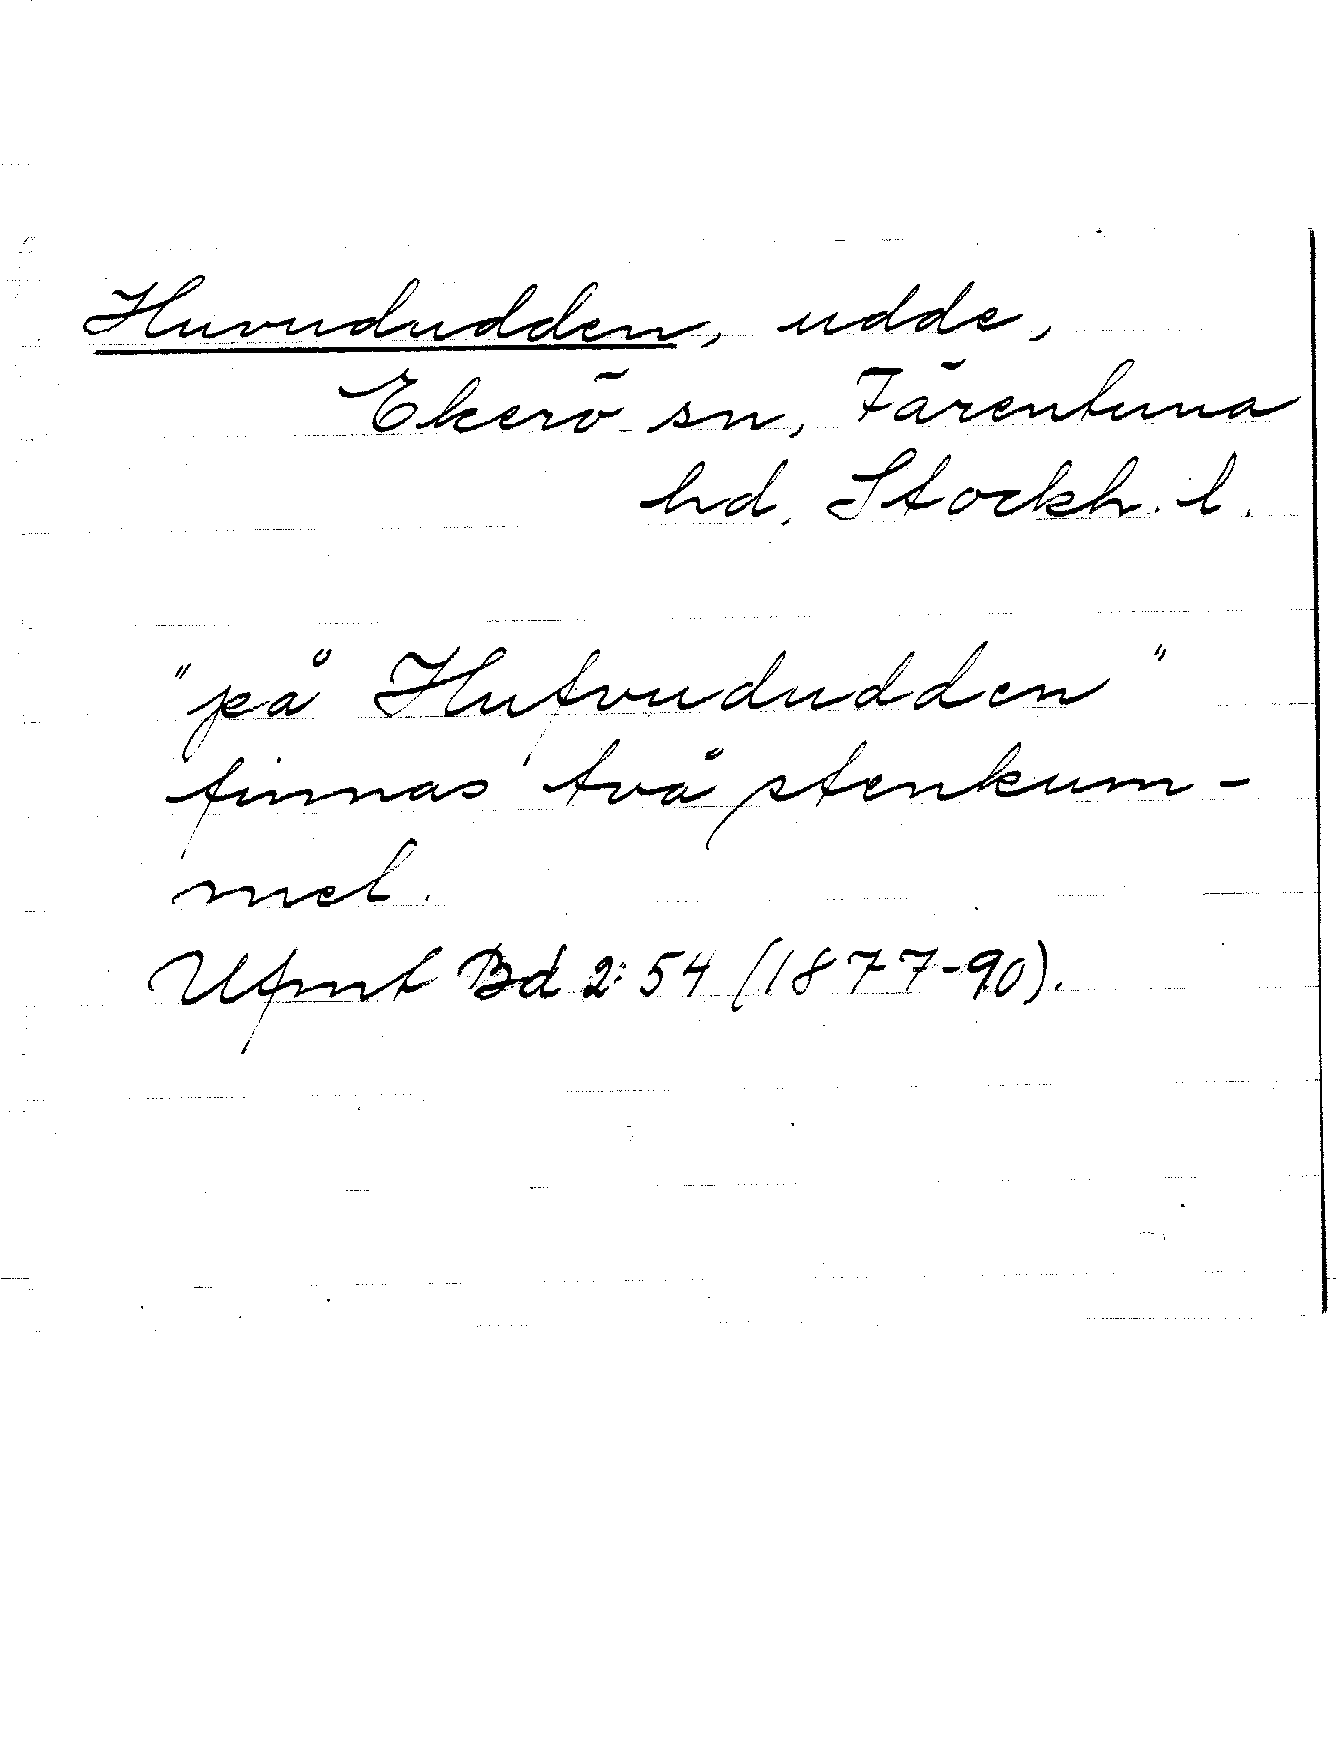 Huvududden, udde,
Ekerö sn, Färentuna
hd, Stockh. l.
"på Hufvududden"
finnas två stenkum-
mel.
Ufmt Bd 2:54 (1877-90).